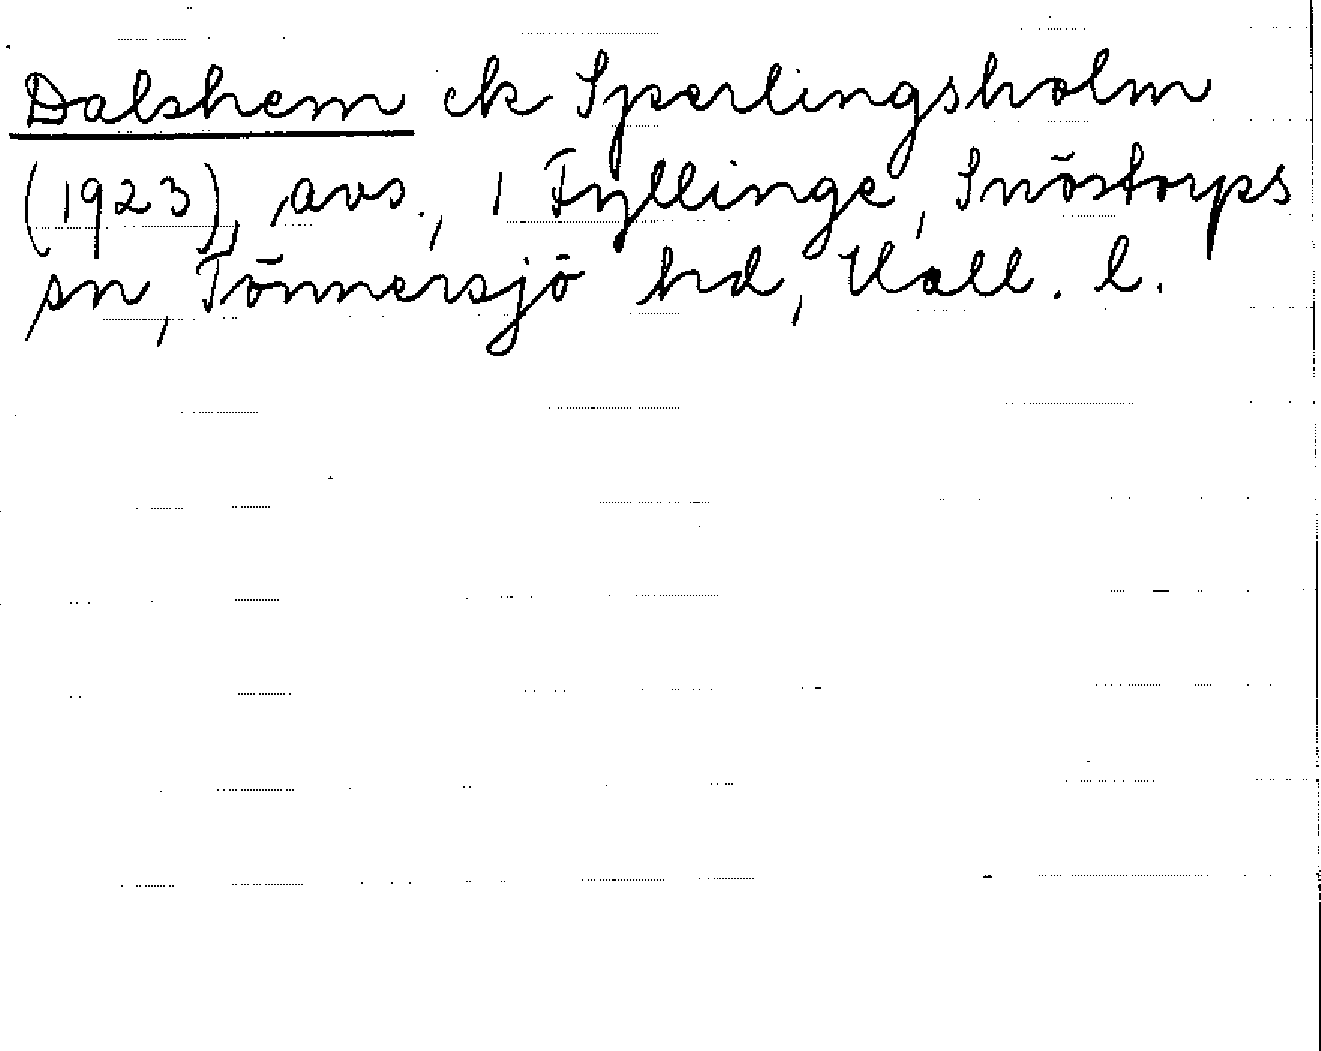 Dalshem ek Sperlingsholm
(1923), avs., 1 Fyllinge, Snöstorps
sn, Tönnersjö hd, Hall. l.